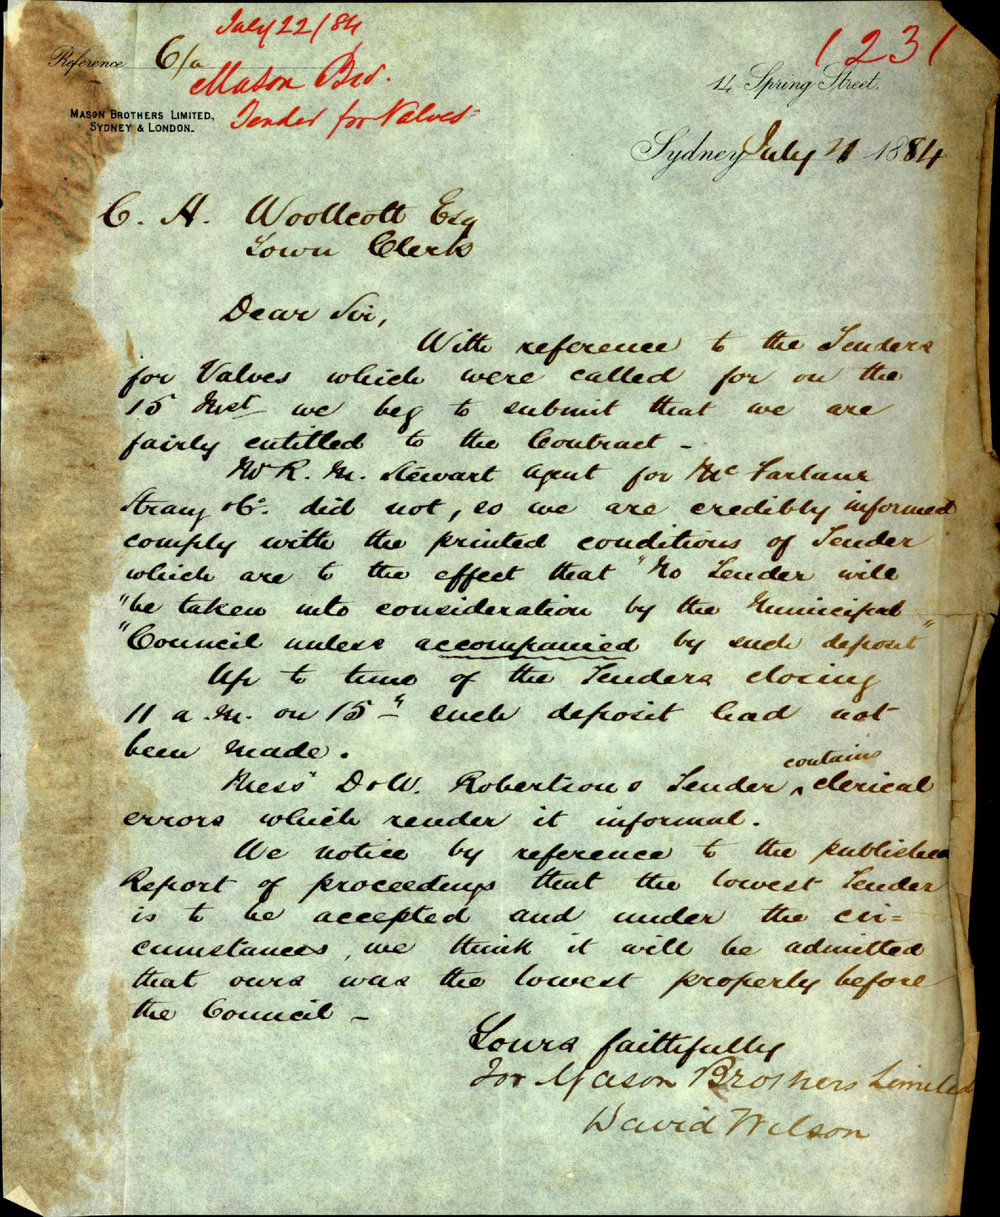 July 22/84
1231
Reference 6/a
Mason Bros.
14 Spring Street.
MASON BROTHERS LIMITED,
SYDNEY & LONDON.
Tender for Valves
Sydney July 21 1884
C. H. Woollcott Esq
Town Clerk
Dear Sir,
With reference to the Tenders
for Valves which were called for on the
15 Inst we beg to submit that we are
fairly entitled to the Contract -
Mr R. M. Stewart Agent for McFarlane
Strang & Co. did not, so we are credibly informed
comply with the printed conditions of Tender
which are to the effect that "No Tender will
"be taken into consideration by the Municipal
"Council unless accompanied by such deposit"
Up to time of the Tenders closing
11 a.m. on 15th such deposit had not
been made.
Messrs D & W. Robertsons Tender contains clerical
errors which render it informal.
We notice by reference to the published
Report of proceedings that the lowest Tender
is to be accepted and under the cir=
cumstances, we think it will be admitted
that ours was the lowest properly before
the Council -
Yours faithfully
For Mason Brothers Limited
David Wilson